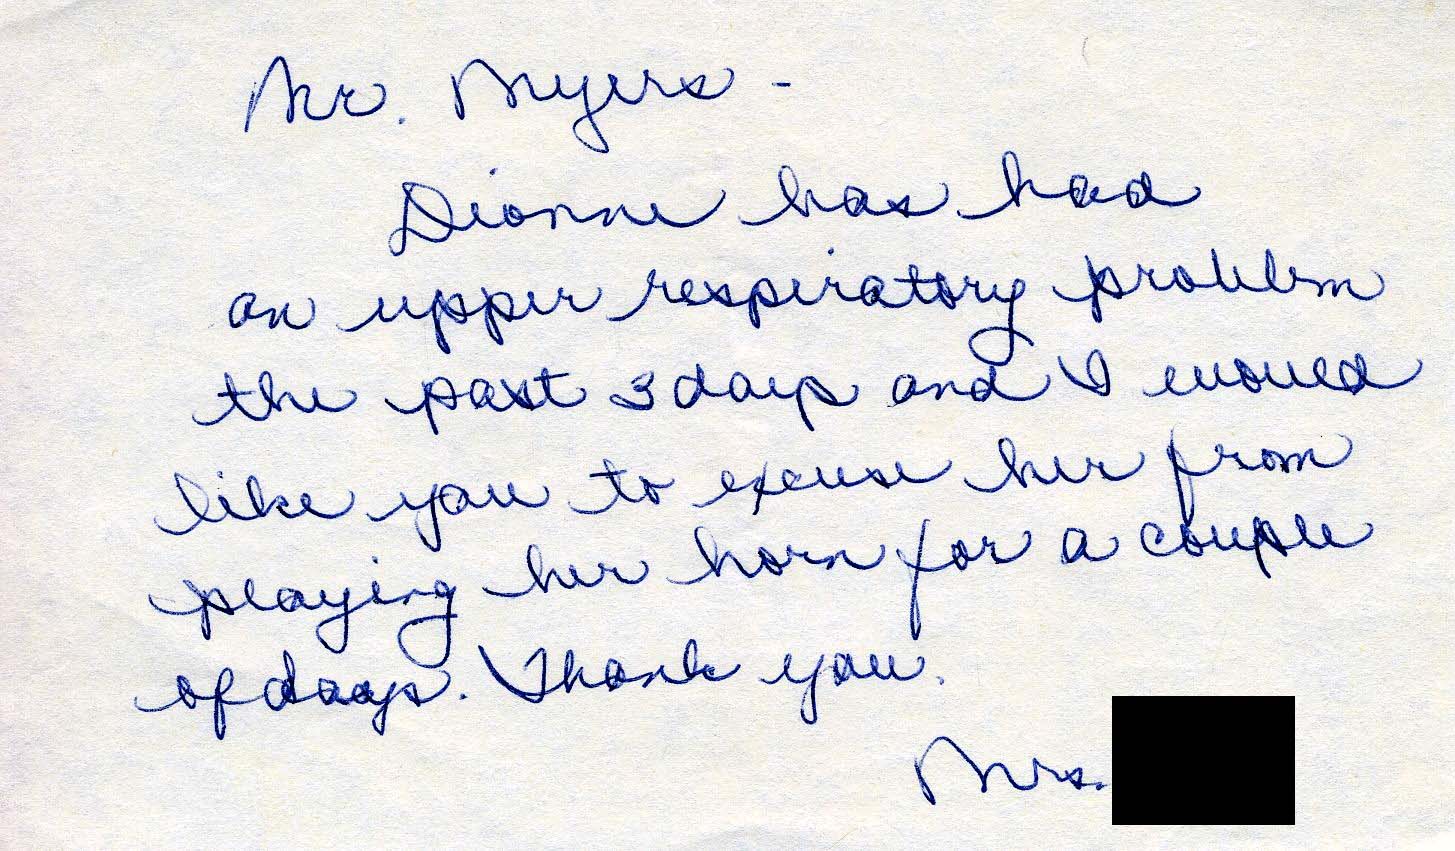 Mr. Myers -
Dionne has had
an upper respiratory problem
the past 3 days and I would
like you to excuse her from
playing her horn for a couple
of days. Thank you.
Mrs.